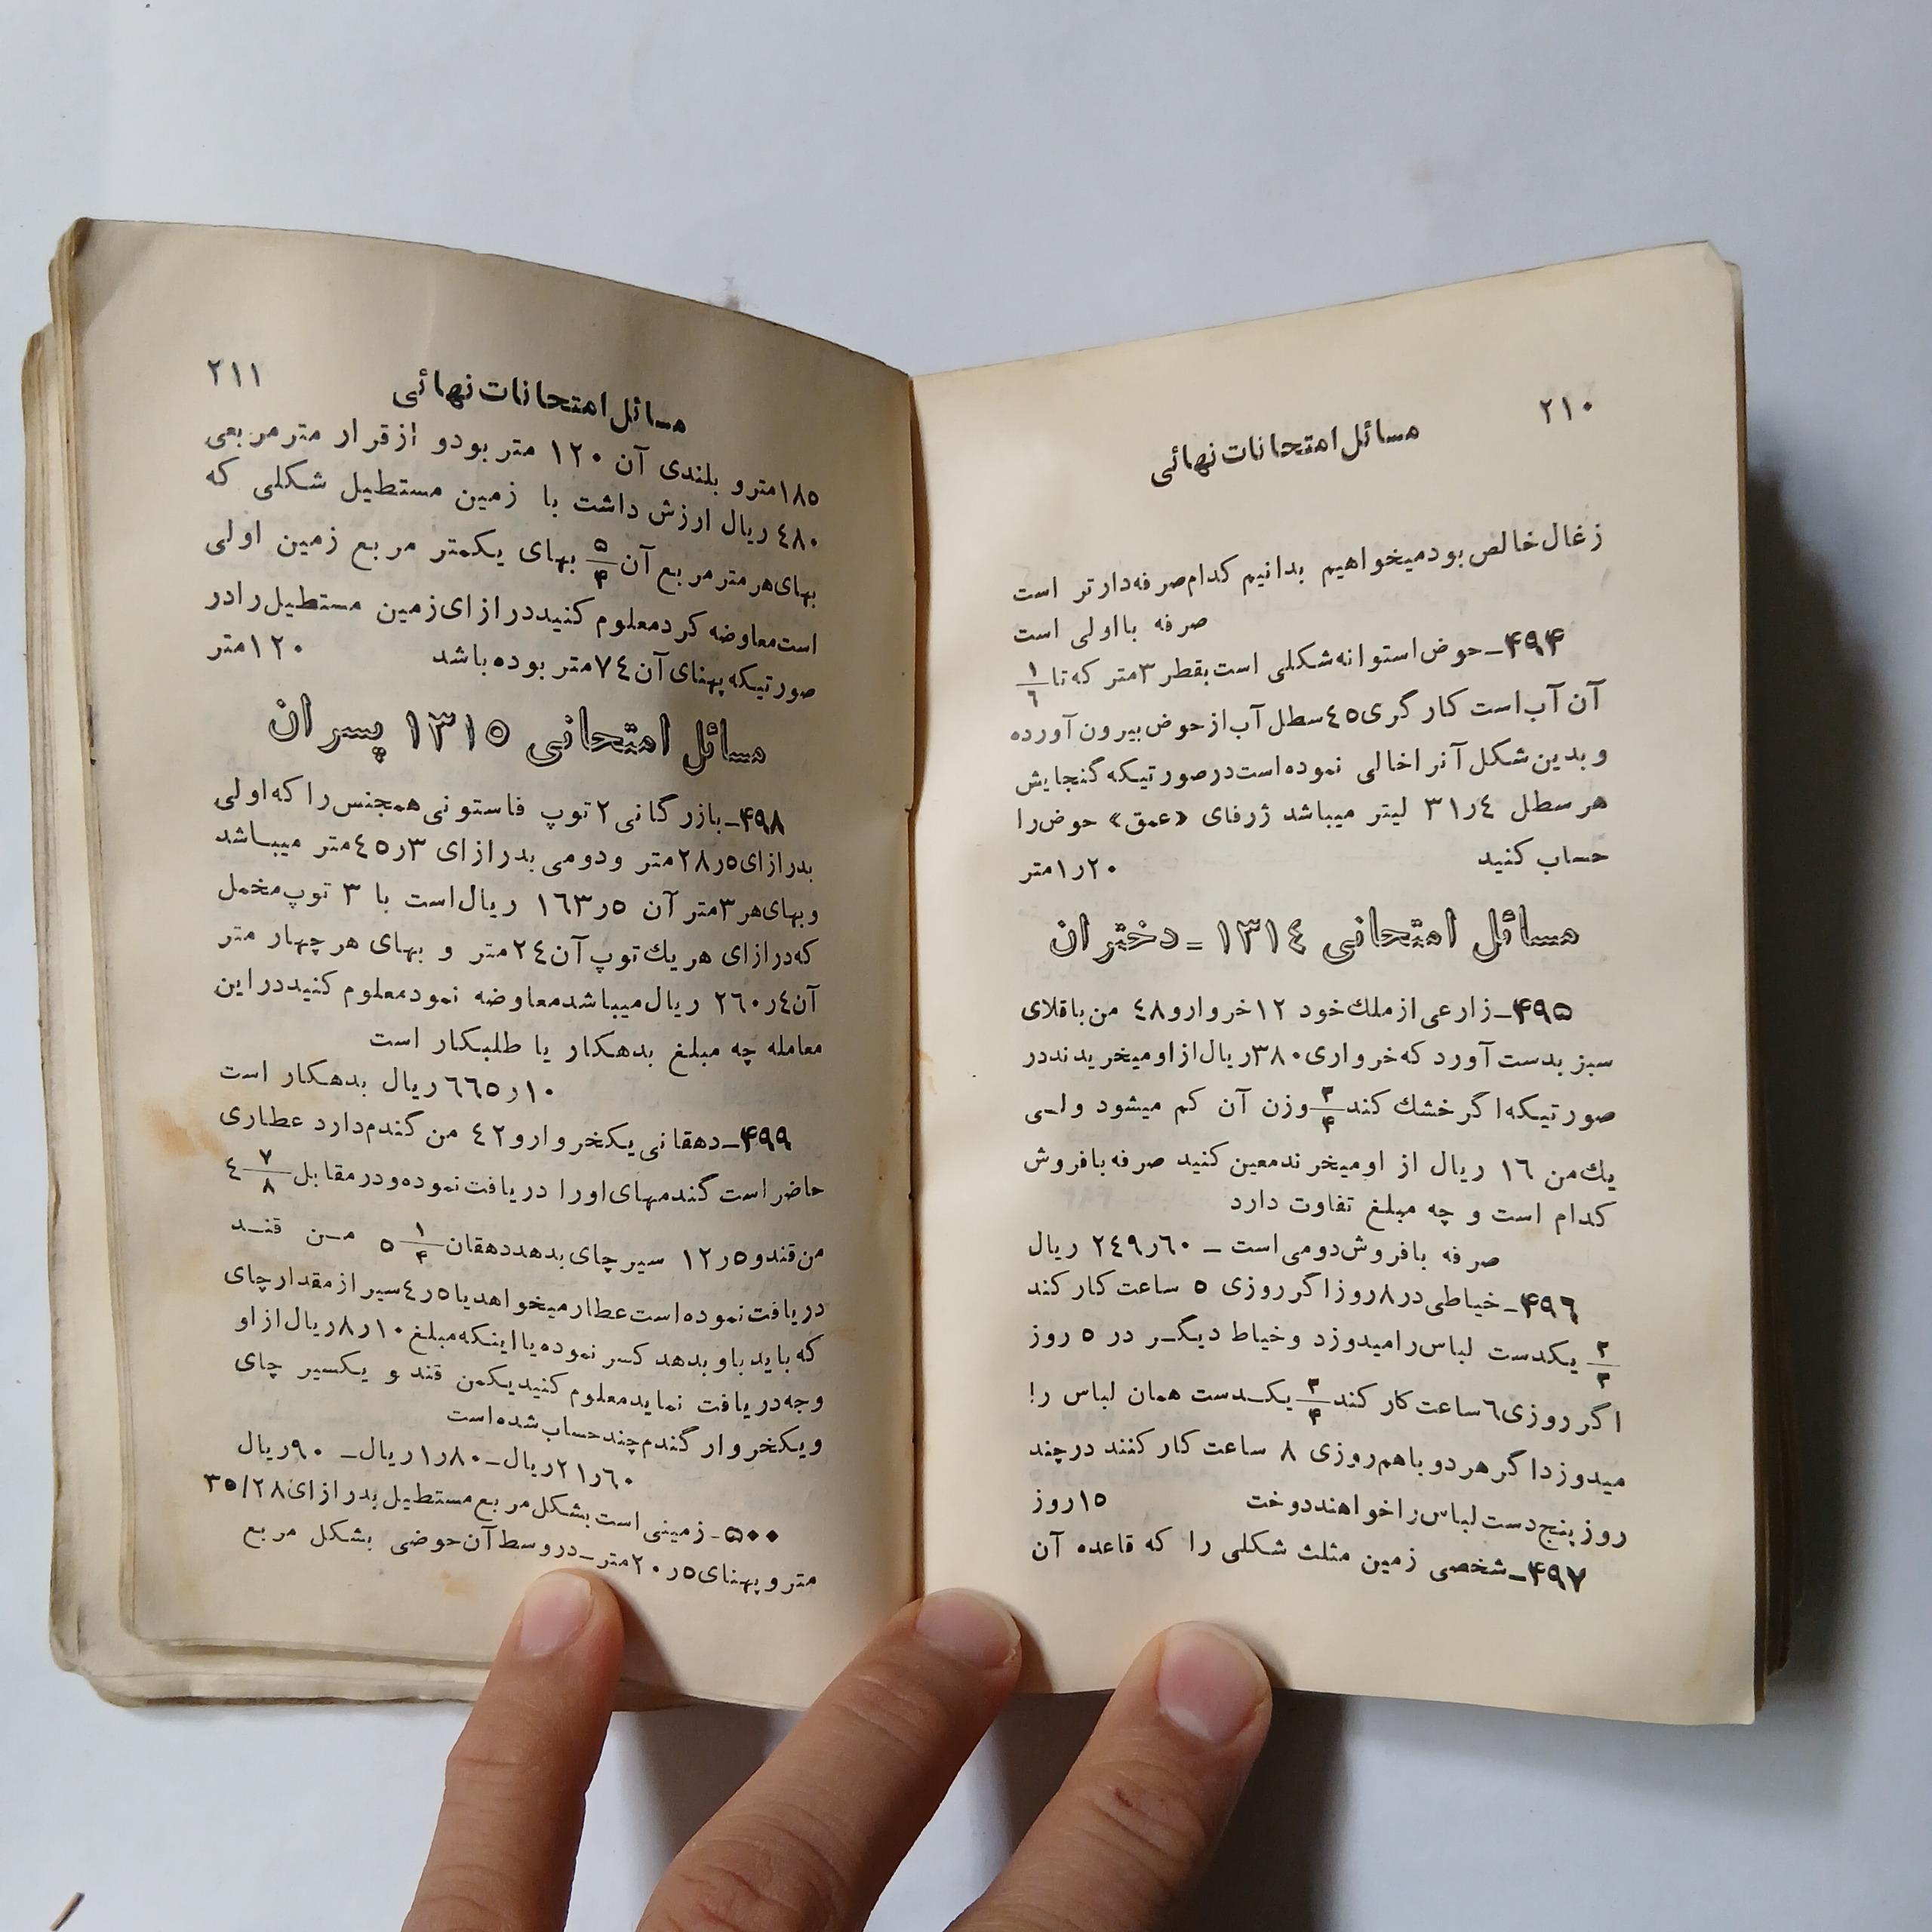 ۲۱۰
مسائل امتحانات نهائی
زغال خالص بود میخواهیم بدانیم کدام صرفه دارتر است
صرفه بااولی است
۴۹۴ـ حوض استوانه شکلی است بقطر ۳ متر که تا ۱/۶
آن آب است کارگری ٤٥ سطل آب از حوض بیرون آورده
و بدین شکل آنرا خالی نموده است در صورتیکه گنجایش
هر سطل ٤ر۳۱ لیتر میباشد ژرفای «عمق» حوض را
حساب کنید ۲۰ر۱ متر
مسائل امتحانی ۱۳۱٤ ـ دختران
۴۹۵ـ زارعی از ملك خود ۱۲ خروار و ٤۸ من باقلای
سبز بدست آورد که خرواری ۳۸۰ ریال از او میخریدند در
صورتیکه اگر خشك کند ۳/۴ وزن آن کم میشود ولی
یك من ۱٦ ریال از او میخرند معین کنید صرفه بافروش
کدام است و چه مبلغ تفاوت دارد
صرفه بافروش دومی است ـ ٦۰ر۲٤۹ ریال
۴۹٦ـ خیاطی در ۸ روز اگر روزی ٥ ساعت کار کند
۲/۳ یکدست لباس را میدوزد و خیاط دیگر در ٥ روز
اگر روزی ٦ ساعت کار کند ۳/۴ یکدست همان لباس را
میدوزد اگر هر دو باهم روزی ۸ ساعت کار کنند در چند
روز پنج دست لباس را خواهند دوخت ۱٥ روز
۴۹۷ـ شخصی زمین مثلث شکلی را که قاعده آن
مسائل امتحانات نهائی ۲۱۱
۱۸٥ متر و بلندی آن ۱۲۰ متر بود و از قرار متر مربعی
٤۸۰ ریال ارزش داشت با زمین مستطیل شکلی که
بهای هر متر مربع آن ۵/۴ بهای یکمتر مربع زمین اولی
است معاوضه کرد معلوم کنید درازای زمین مستطیل را در
صورتیکه پهنای آن ۷٤ متر بوده باشد ۱۲۰ متر
مسائل امتحانی ۱۳۱٥ پسران
۴۹۸ـ بازرگانی ۲ توپ فاستونی همجنس را که اولی
بدرازای ٥ر۲۸ متر و دومی بدرازای ۳ر٤٥ متر میباشد
و بهای هر ۳ متر آن ٥ر۱٦۳ ریال است با ۳ توپ مخمل
که درازای هر یك توپ آن ۲٤ متر و بهای هر چهار متر
آن ٤ر۲٦۰ ریال میباشد معاوضه نمود معلوم کنید در این
معامله چه مبلغ بدهکار یا طلبکار است
۱۰ر٦٦٥ ریال بدهکار است
۴۹۹ـ دهقانی یکخروار و ٤۲ من گندم دارد عطاری
حاضر است گندمهای او را دریافت نموده و در مقابل ۷/۸ ٤
من قند و ٥ر۱۲ سیر چای بدهد دهقان ۱/۴ ٥ من قند
دریافت نموده است عطار میخواهد یا ٥ر٤ سیر از مقدار چای
که باید باو بدهد کسر نموده یا اینکه مبلغ ۱۰ر۸ ریال از او
وجه دریافت نماید معلوم کنید یکمن قند و یکسیر چای
و یکخروار گندم چند حساب شده است
٦۰ر۲۱ ریال ـ ۸۰ر۱ ریال ـ ۹۰ ریال
۵۰۰ـ زمینی است بشکل مربع مستطیل بدرازای ۳٥/۲۸
متر و پهنای ٥ر۲۰ متر ـ در وسط آن حوضی بشکل مربع